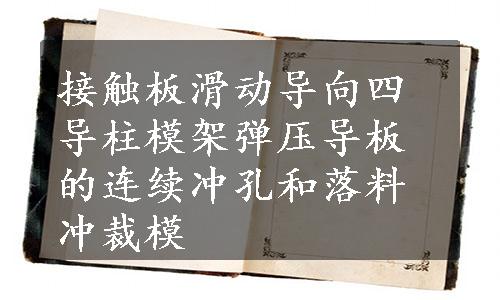 接触板滑动导向四
导柱模架弹压导板
的连续冲孔和落料
冲裁模